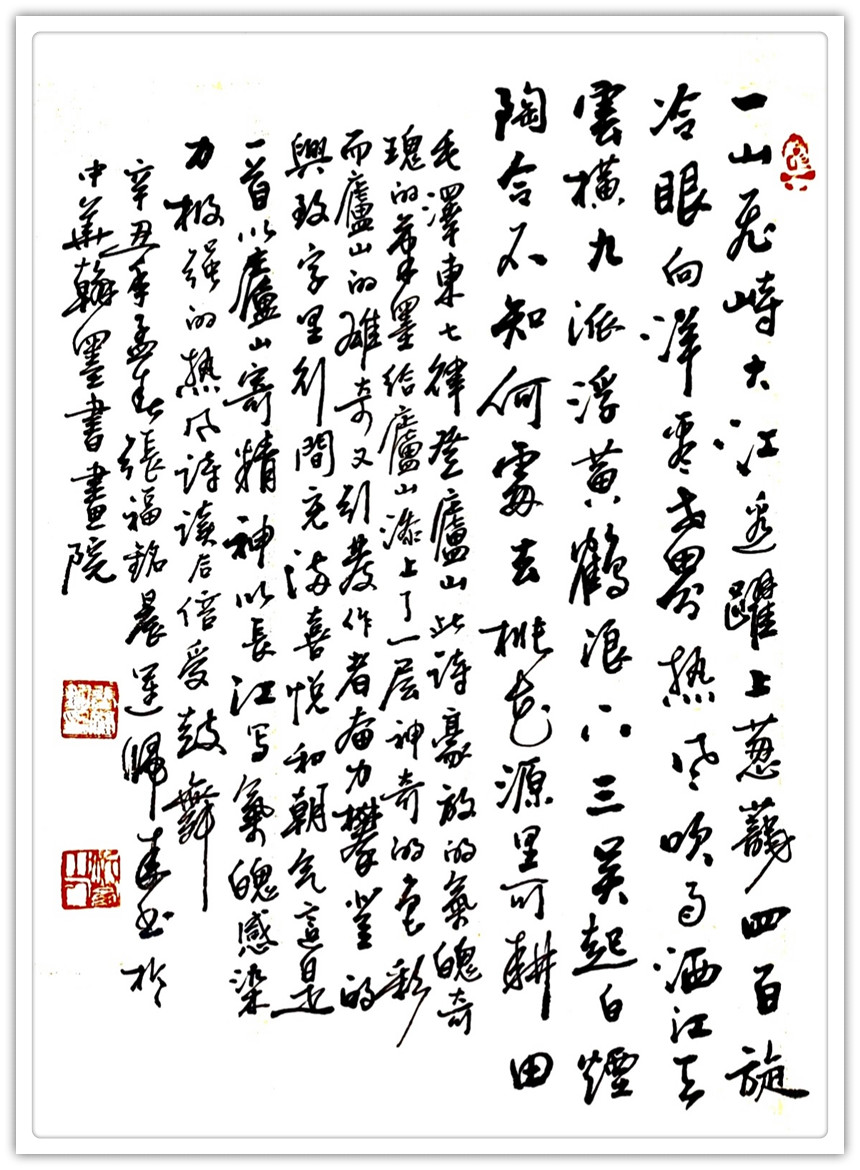 一山飞峙大江边躍上葱蘢四百旋
冷眼向洋看世界热风吹雨洒江天
雲橫九派浮黄鶴浪下三吴起白煙
陶令不知何處去桃花源里可耕田
毛澤東七律登廬山此诗豪放的氣魄奇
瑰的筆墨给廬山添上了一层神奇的色彩
而廬山的雄奇又引发作者奋力攀登的
興致字里行間充满喜悦和朝气這是
一首以廬山寄精神以長江写氣魄感染
力极强的热风诗读后倍受鼓舞
辛丑年孟春張福銘晨運歸来书於
中華翰墨書畫院